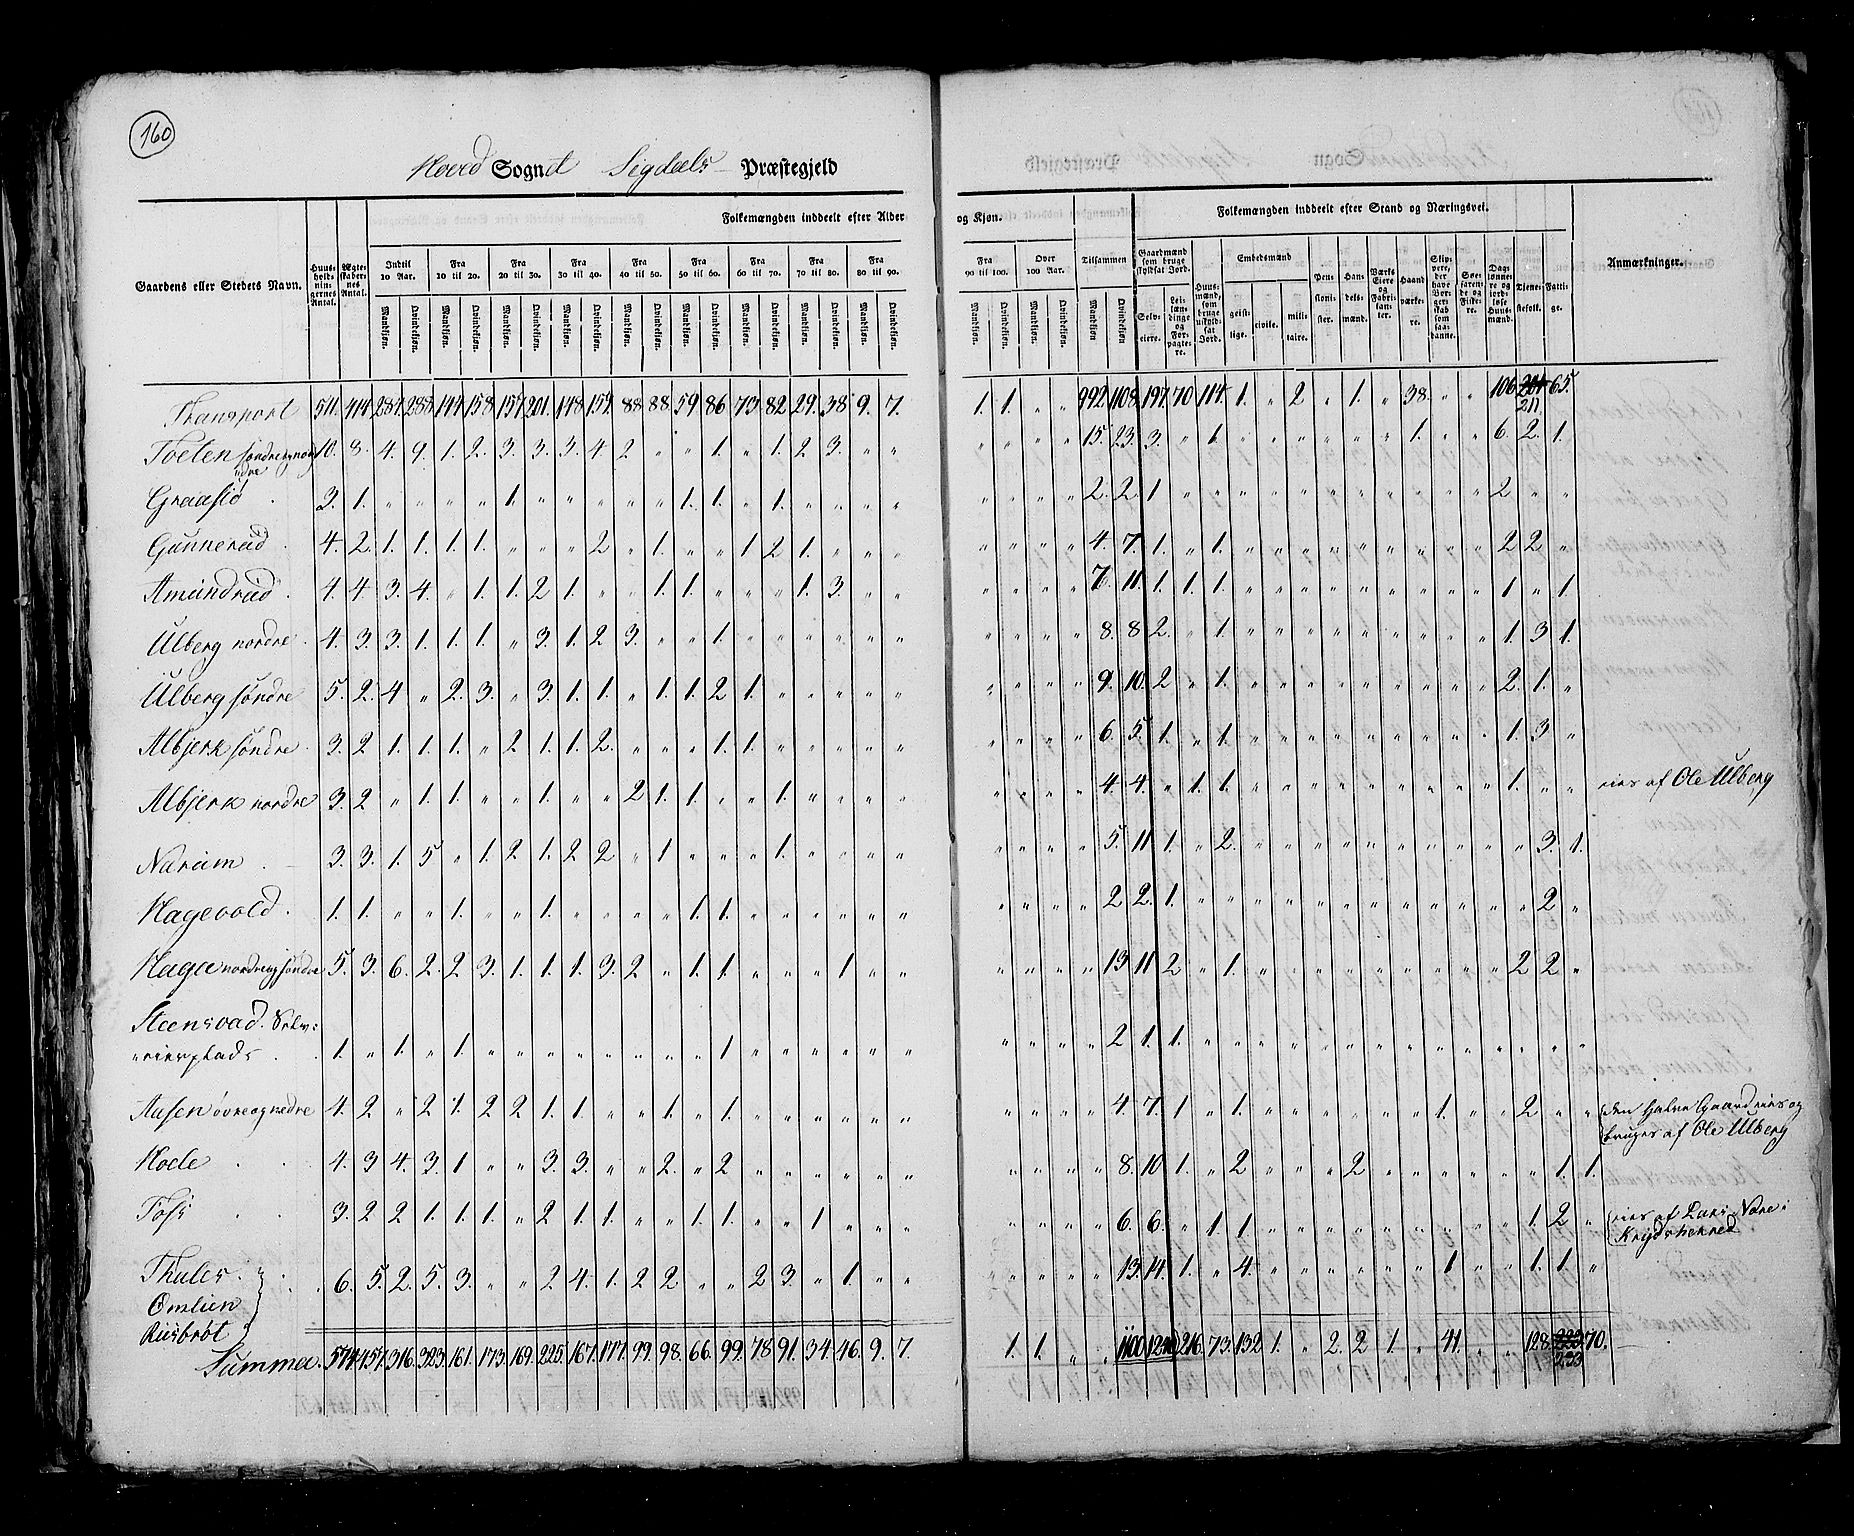 160
Hoved Sognet Sigdals Præstegjeld
Folkemængden inddeelt efter Alder og Kjøn. Folkemængden inddeelt efter Stand og Næringsvei.
Gaardens eller Stedets Navn. Huusholdningernes Antal. Ægteskabernes Antal. Indtil 10 Aar. Fra 10 til 20. Fra 20 til 30. Fra 30 til 40. Fra 40 til 50. Fra 50 til 60. Fra 60 til 70. Fra 70 til 80. Fra 80 til 90. Fra 90 til 100. Over 100 Aar. Tilsammen Gaardmænd som bruge skyldsat Jord. Huusmænd, som bruge uskyldsat Jord. Embedsmænd Pensionister. Handelsmænd. Værks Eiere og Fabrikanter. Haandværkere. Skippere, der have Borgerskab som saadanne. Søefarende og Fiskere. Dagslønnere og jordløse Huusmænd. Tjenestefolk. Fattige. Anmærkninger.
Mandkjøn. Qvindekjøn. Mandkjøn. Qvindekjøn. Mandkjøn. Qvindekjøn. Mandkjøn. Qvindekjøn. Mandkjøn. Qvindekjøn. Mandkjøn. Qvindekjøn. Mandkjøn. Qvindekjøn. Mandkjøn. Qvindekjøn. Mandkjøn. Qvindekjøn. Mandkjøn. Qvindekjøn. Mandkjøn. Qvindekjøn. Mandkjøn Qvindekjøn. Selveiere. Leilændinge og Forpagtere. geistlige. civile. militaire.
Transport 511. 414. 287. 288. 144. 158. 157. 201. 148. 159. 88. 88. 59. 86. 73. 82. 29. 38. 9. 7. 1. 1. " " 992. 1108. 197. 70. 114. 1. " 2 " 1. " 38. " " 106. 204 65.
211.
Toeten søndre og nordre 10. 8. 4. 9. 1. 2. 3. 3. 3. 4. 2 " " 1. " 1. 2 3. " " " " " " 15. 23. 3. " 1. " " " " " " 1. " " 6. 2. 1.
Graasiø 3. 1. " " " " 1. " " " " " 1. 1. " 1. " " " " " " " " 2. 2. 1 " " " " " " " " " " " 2 " "
Gunnerud 4. 2. 1. 1. 1. 1. " " " 2 " 1. " " 1 2 1. " " " " " " " 4. 7. 1. " 1. " " " " " " " " " 2 2 "
Amundrud 4. 4. 3. 4. " 1. 1. 2 1. " " 1. 1. " " " 1. 3. " " " " " " 7. 11. 1. 1. 1. " " " " " " " " " 1 " 1.
Ulberg nordre 4. 3. 3. 1. 1. 1. " 3. 1. 2 3. " " 1. " " " " " " " " " " 8. 8 2. " 1. " " " " " " " " " 1. 3 1.
Ulberg søndre 5. 2. 4 " 2. 3. " 3. 1. 1. " 1. 1. 2 1. " " " " " " " " " 9. 10. 2 " 1. " " " " " " " " " 2. 1. "
Albjerk søndre 3. 2 1. 1. 1. " 2 1. 1. 2. " " " 1. 1. " " " " " " " " " 6. 5. 1. " 1. " " " " " " " " " 1. 3. "
Albjerk nordre 3. 2 " 1. 1. " " 1. " " 2 1. 1. " " 1. " " " " " " " " 4. 4. " 1. 1. " " " " " " " " " 1. " " eies af Ole Ulberg
Narum 3. 3. 1. 5 " 1. 2 1. 2 2 " 1 " " " 1. " " " " " " " " 5. 11. 1. " 2. " " " " " " " " " " 3. 1.
Hagevold 1. 1. " " 1. " " 1. " " " " 1. 1. " " " " " " " " " " 2 2. 1. " " " " " " " " " " " " 2 "
Haga nordre og søndre 5. 3. 6. 2. 2 3. 1. 1. 1. 3. 2 " 1. 1. " " " 1 " " " " " " 13. 11. 2 " 1. " " " " " " " " " 2 2. "
Steensvad. Selv-
eierplads 1. " 1. " 1. " " " " " " " " 1 " " " " " " " " " " 2 1. 1. " " " " " " " " " " " " " "
Aasen øvre og nedre 4. 2 " 2 1. 2 2 1. 1. " " 1. " 1. " " " " " " " " " " 4. 7. 1 " 1. " " " " " " 1. " " 2 " " den halve Gaard eies og
bruges af Ole Ulberg
Hoele 4. 3 4. 3. 1 " " 3. 3. " " 2. " 2 " " " " " " " " " " 8. 10 1. " 2 " " " 2 " " " " " " 1. 1.
Foss 3. 2 2 1. 1. 1. " 2 1. 1. " " 1. 1. " " 1 " " " " " " " 6. 6. " 1. 1. " " " " " " " " " 1. 2 " eies af Lars Nære i
Krydsherred
Thules 6. 5. 2. 5. 3. " " 2. 4. 1. 2 2. " " 2 3. " 1. " " " " " " 13. 14. 1. " 4. " " " " " " 1 " " 1. 1. "
Omlien
Ruisbrøt
Summa 574. 457. 316. 323. 161. 173. 169. 225. 167. 177. 99. 98. 66. 99. 78. 91. 34. 46. 9. 7. 1. 1. " " 1100. 1240 216. 73. 132 1. " 2. 2 1. " 41. " " 128. 223 70.
233